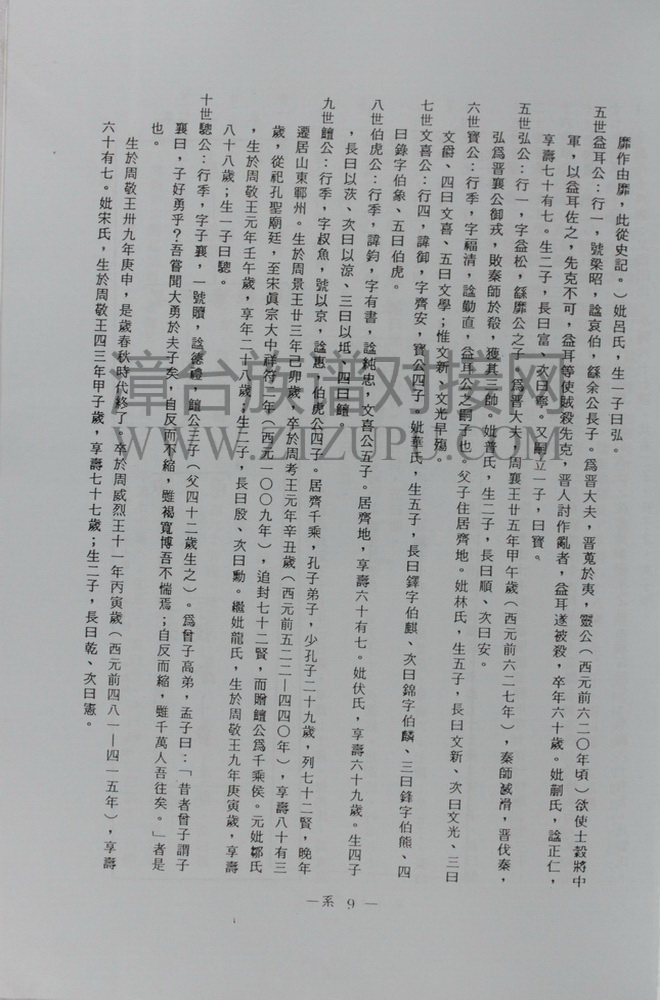 靡作由靡，此從史記。）妣呂氏，生一子曰弘。
五世益耳公：行一，號榮昭，諡哀伯，繇余公長子。為晉大夫，晋蒐於夷，靈公（西元前六二〇年頃）欲使士縠將中
軍，以益耳佐之，先克不可，益耳等使賊殺先克，晋人討作亂者，益耳遂被殺，卒年六十歲。妣蒯氏，諡正仁，
享壽七十有七。生二子，長曰富、次曰寧。又嗣立一子，曰寶。
五世弘公：行一，字益松，繇靡公之子，為晋大夫，周襄王廿五年甲午歲（西元前六二七年），秦師滅滑，晋伐秦，
弘為晋襄公御戎，敗秦師於殽，獲其三帥。妣普氏，生二子，長曰順、次曰安。
六世寶公：行季，字福清，諡勤直，益耳公之嗣子也。父子住居齊地。妣林氏，生五子，長曰文新、次曰文光、三曰
文爵、四曰文喜、五曰文學；惟文新、文光早殤。
七世文喜公：行四，諱御，字齊安，寶公四子，妣華氏，生五子，長曰鐸字伯麒、次曰錦字伯麟、三曰鋒字伯熊、四
曰錄字伯象、五曰伯虎。
八世伯虎公：行季，諱鈞，字有書，諡純忠，文喜公五子。居齊地，享壽六十有七。妣伏氏，享壽六十九歲。生四子
，長曰以茨、次曰以涼、三曰以坻、四曰鱣。
九世鱣公：行季，字叔魚，號以京，諡惠，伯虎公四子。居齊千乘，孔子弟子，少孔子二十九歲，列七十二賢，晚年
遷居山東鄆州。生於周景王廿三年己卯歲，卒於周考王元年辛丑歲（西元前五二二—四四〇年），享壽八十有三
歲，從祀孔聖廟廷，至宋眞宗大中祥符二年（西元一〇〇九年），追封七十二賢，而贈鱣公為千乘侯。元妣鄒氏
，生於周敬王元年壬午歲，享年二十八歲；生二子，長曰殷、次曰勳。繼妣龍氏，生於周敬王九年庚寅歲，享壽
八十八歲；生一子曰驄。
十世驄公：行季，字子襄，一號贖，諡德禮，鱣公三子（父四十二歲生之）。為曾子高弟，孟子曰：「昔者曾子謂子
襄曰，子好勇乎？吾嘗聞大勇於夫子矣，自反而不縮，雖褐寬博吾不惴焉；自反而縮，雖千萬人吾往矣。」者是
也。
生於周敬王卅九年庚申，是歲春秋時代終了。卒於周威烈王十一年丙寅歲（西元前四八一—四一五年），享壽
六十有七。妣宋氏，生於周敬王四三年甲子歲，享壽七十七歲；生二子，長曰乾、次曰憲。
—系 9 —
章台族谱对接网
WWW.ZIZUPU.COM